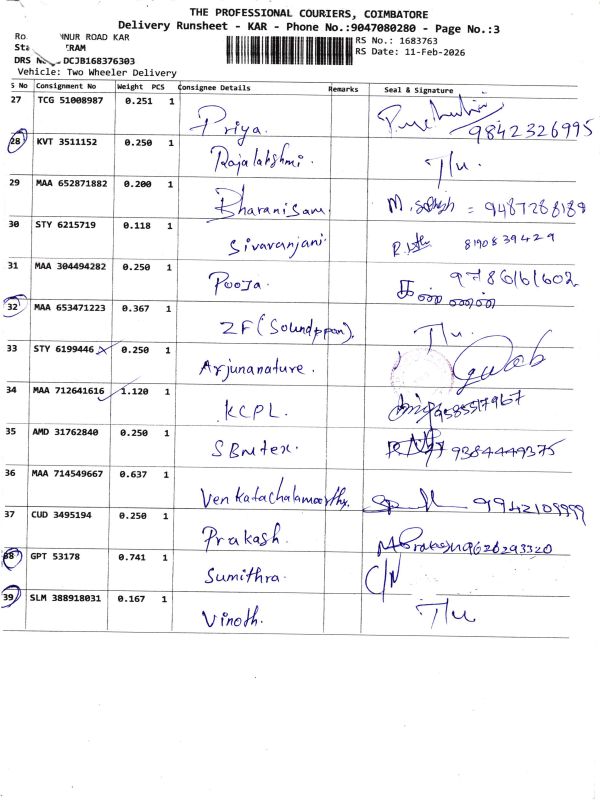 THE PROFESSIONAL COURIERS, COIMBATORE
Delivery Runsheet - KAR - Phone No.:9047080280 - Page No.:3
NUR ROAD KAR
RS No.: 1683763
RS Date: 11-Feb-2026
DRS DCJB168376303
Vehicle: Two Wheeler Delivery
S No Consignment No Weight PCS Consignee Details Remarks Seal & Signature
27 TCG 51008987 0.251 1 Priya. 9842326995
28 KVT 3511152 0.250 1 Rajalakshmi. T/u.
29 MAA 652871882 0.200 1 Bharanisam M. = 9487288189
30 STY 6215719 0.118 1 Sivaranjani. 8190839429
31 MAA 304494282 0.250 1 Pooja. 9786161602
32 MAA 653471223 0.367 1 ZF(Soundppan). T/u.
33 STY 6199446 0.250 1 Arjunanature.
34 MAA 712641616 1.120 1 KCPL. 9585517967
35 AMD 31762840 0.250 1 SBMtex. 9384449375
36 MAA 714549667 0.637 1 Venkatachalamoorthy. 9942109999
37 CUD 3495194 0.250 1 Prakash. 9626293320
38 GPT 53178 0.741 1 Sumithra. C/N
39 SLM 388918031 0.167 1 Vinoth. T/u